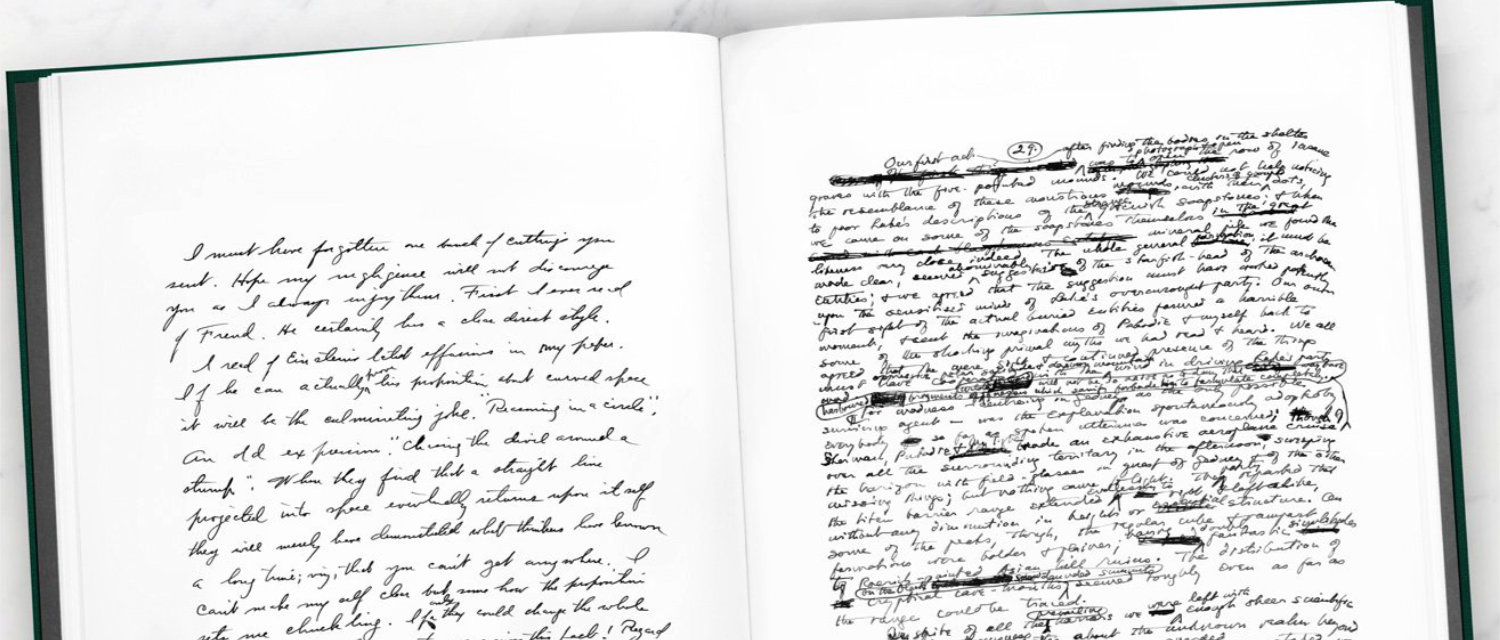 I must have forgotten one bunch of cuttings you
sent. Hope my negligence will not discourage
you as I always enjoy them. First I ever read
of Freud. He certainly has a clear direct style.
I read of Einstein's latest in my paper.
If he can actually prove his proposition about curved space
it will be the culminating joke. "Reasoning in a circle",
an old expression. "Chasing the devil around a
stump". When they find that a straight line
projected into space eventually returns upon itself
they will merely have demonstrated what thinkers have known
a long time; viz; that you can't get anywhere. I
can't make my self clear but some how the proposition
sets me chuckling. If only they could change the whole
Our first act 29. after finding the bodies in the shelter
was to photograph & open the row of insane
graves with the five-pointed mounds. We could not help noticing
the resemblance of these monstrous mounds, with their clusters of grouped dots,
to poor Lake's descriptions of the strange greenish soapstones; & when
we came on some of the soapstones themselves in the great
mineral pile we found the
likeness very close indeed. The whole general formation, it must be
made clear, seemed abominably suggestive of the starfish-head of the archaean
entities; & we agreed that the suggestion must have worked potently
upon the sensitised minds of Lake's overwrought party. Our own
first sight of the actual buried entities formed a horrible
moment, & sent the imaginations of Pabodie & myself back to
some of the shocking primal myths we had read & heard. We all
agreed that the mere sight & continued presence of the things
must have
driving Lake's party
for madness - centreing in Gedney as the only possible
surviving agent - was the explanation spontaneously adopted by
everybody so far as spoken utterance was concerned; though
Sherman, Pabodie & McTighe made an exhaustive aeroplane cruise
over all the surrounding territory in the afternoon, sweeping
the horizon with field-glasses in quest of Gedney & of the other
missing things; but nothing came to light. The party reported that
the titan barrier range extended endlessly to right & left alike,
without any diminution in height or essential structure. On
some of the peaks, though, the regular cube & rampart
formations were bolder & plainer; having doubly fantastic similitudes
to Roerich-painted Asian hill ruins. The distribution of
cryptical cave-mouths on the black snow-denuded summits seemed roughly even as far as
the range could be traced.
In spite of all the prevailing horrors we were left with
enough sheer scientific
about the unknown realm beyond